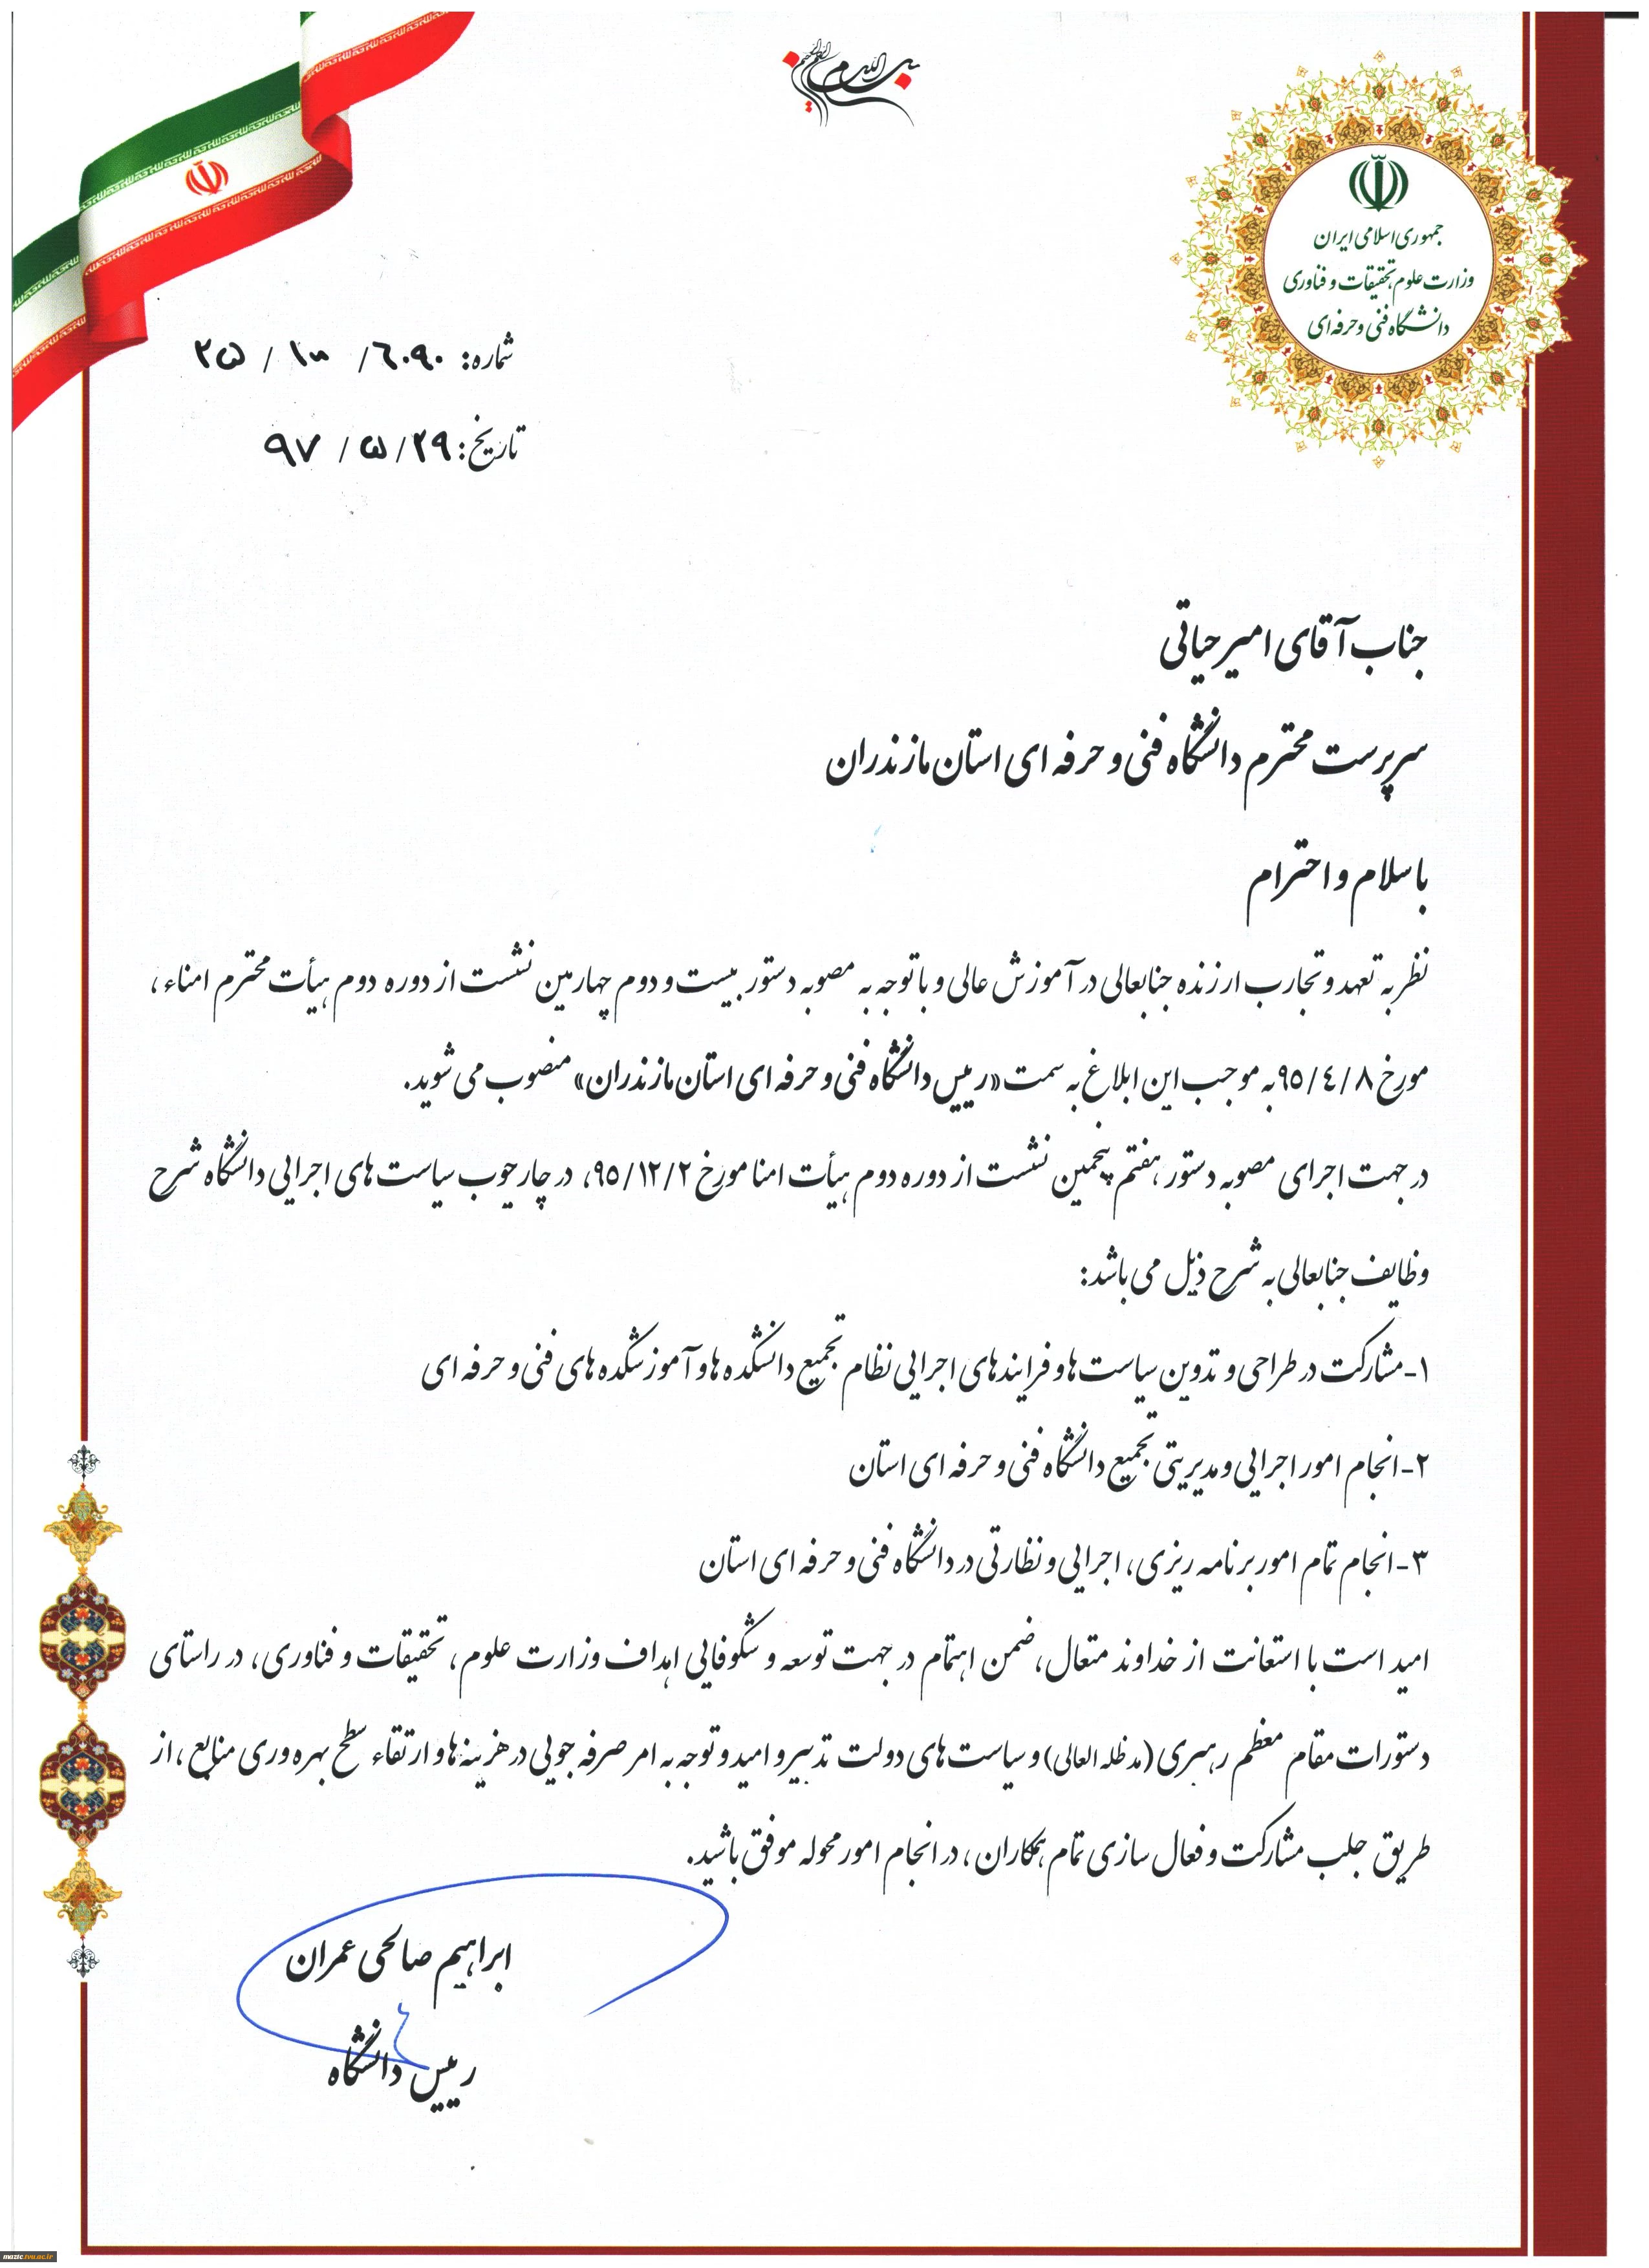 بسم الله الرحمن الرحیم
جمهوری اسلامی ایران
وزارت علوم، تحقیقات و فناوری
دانشگاه فنی و حرفه‌ای
شماره: ۲۵ / ۱۰۰ / ۶۰۹۰
تاریخ: ۹۷ / ۵ / ۲۹
جناب آقای امیر حیاتی
سرپرست محترم دانشگاه فنی و حرفه ای استان مازندران
با سلام و احترام
نظر به تعهد و تجارب ارزنده جنابعالی در آموزش عالی و با توجه به مصوبه دستور بیست و دوم چهارمین نشست از دوره دوم هیأت محترم امناء،
مورخ ۹۵/۴/۸ به موجب این ابلاغ به سمت «رییس دانشگاه فنی و حرفه ای استان مازندران» منصوب می شوید.
در جهت اجرای مصوبه دستور هفتم پنجمین نشست از دوره دوم هیأت امنا مورخ ۹۵/۱۲/۲، در چارچوب سیاست های اجرایی دانشگاه شرح
وظایف جنابعالی به شرح ذیل می باشد:
۱-مشارکت در طراحی و تدوین سیاست ها و فرایندهای اجرایی نظام تجمیع دانشکده ها و آموزشکده های فنی و حرفه ای
۲-انجام امور اجرایی و مدیریتی تجمیع دانشگاه فنی و حرفه ای استان
۳-انجام تمام امور برنامه ریزی، اجرایی و نظارتی در دانشگاه فنی و حرفه ای استان
امید است با استعانت از خداوند متعال، ضمن اهتمام در جهت توسعه و شکوفایی اهداف وزارت علوم، تحقیقات و فناوری، در راستای
دستورات مقام معظم رهبری (مدظله العالی) و سیاست های دولت تدبیر و امید و توجه به امر صرفه جویی در هزینه ها و ارتقاء سطح بهره وری منابع، از
طریق جلب مشارکت و فعال سازی تمام همکاران، در انجام امور محوله موفق باشید.
ابراهیم صالحی عمران
رییس دانشگاه
mazic.tvu.ac.ir